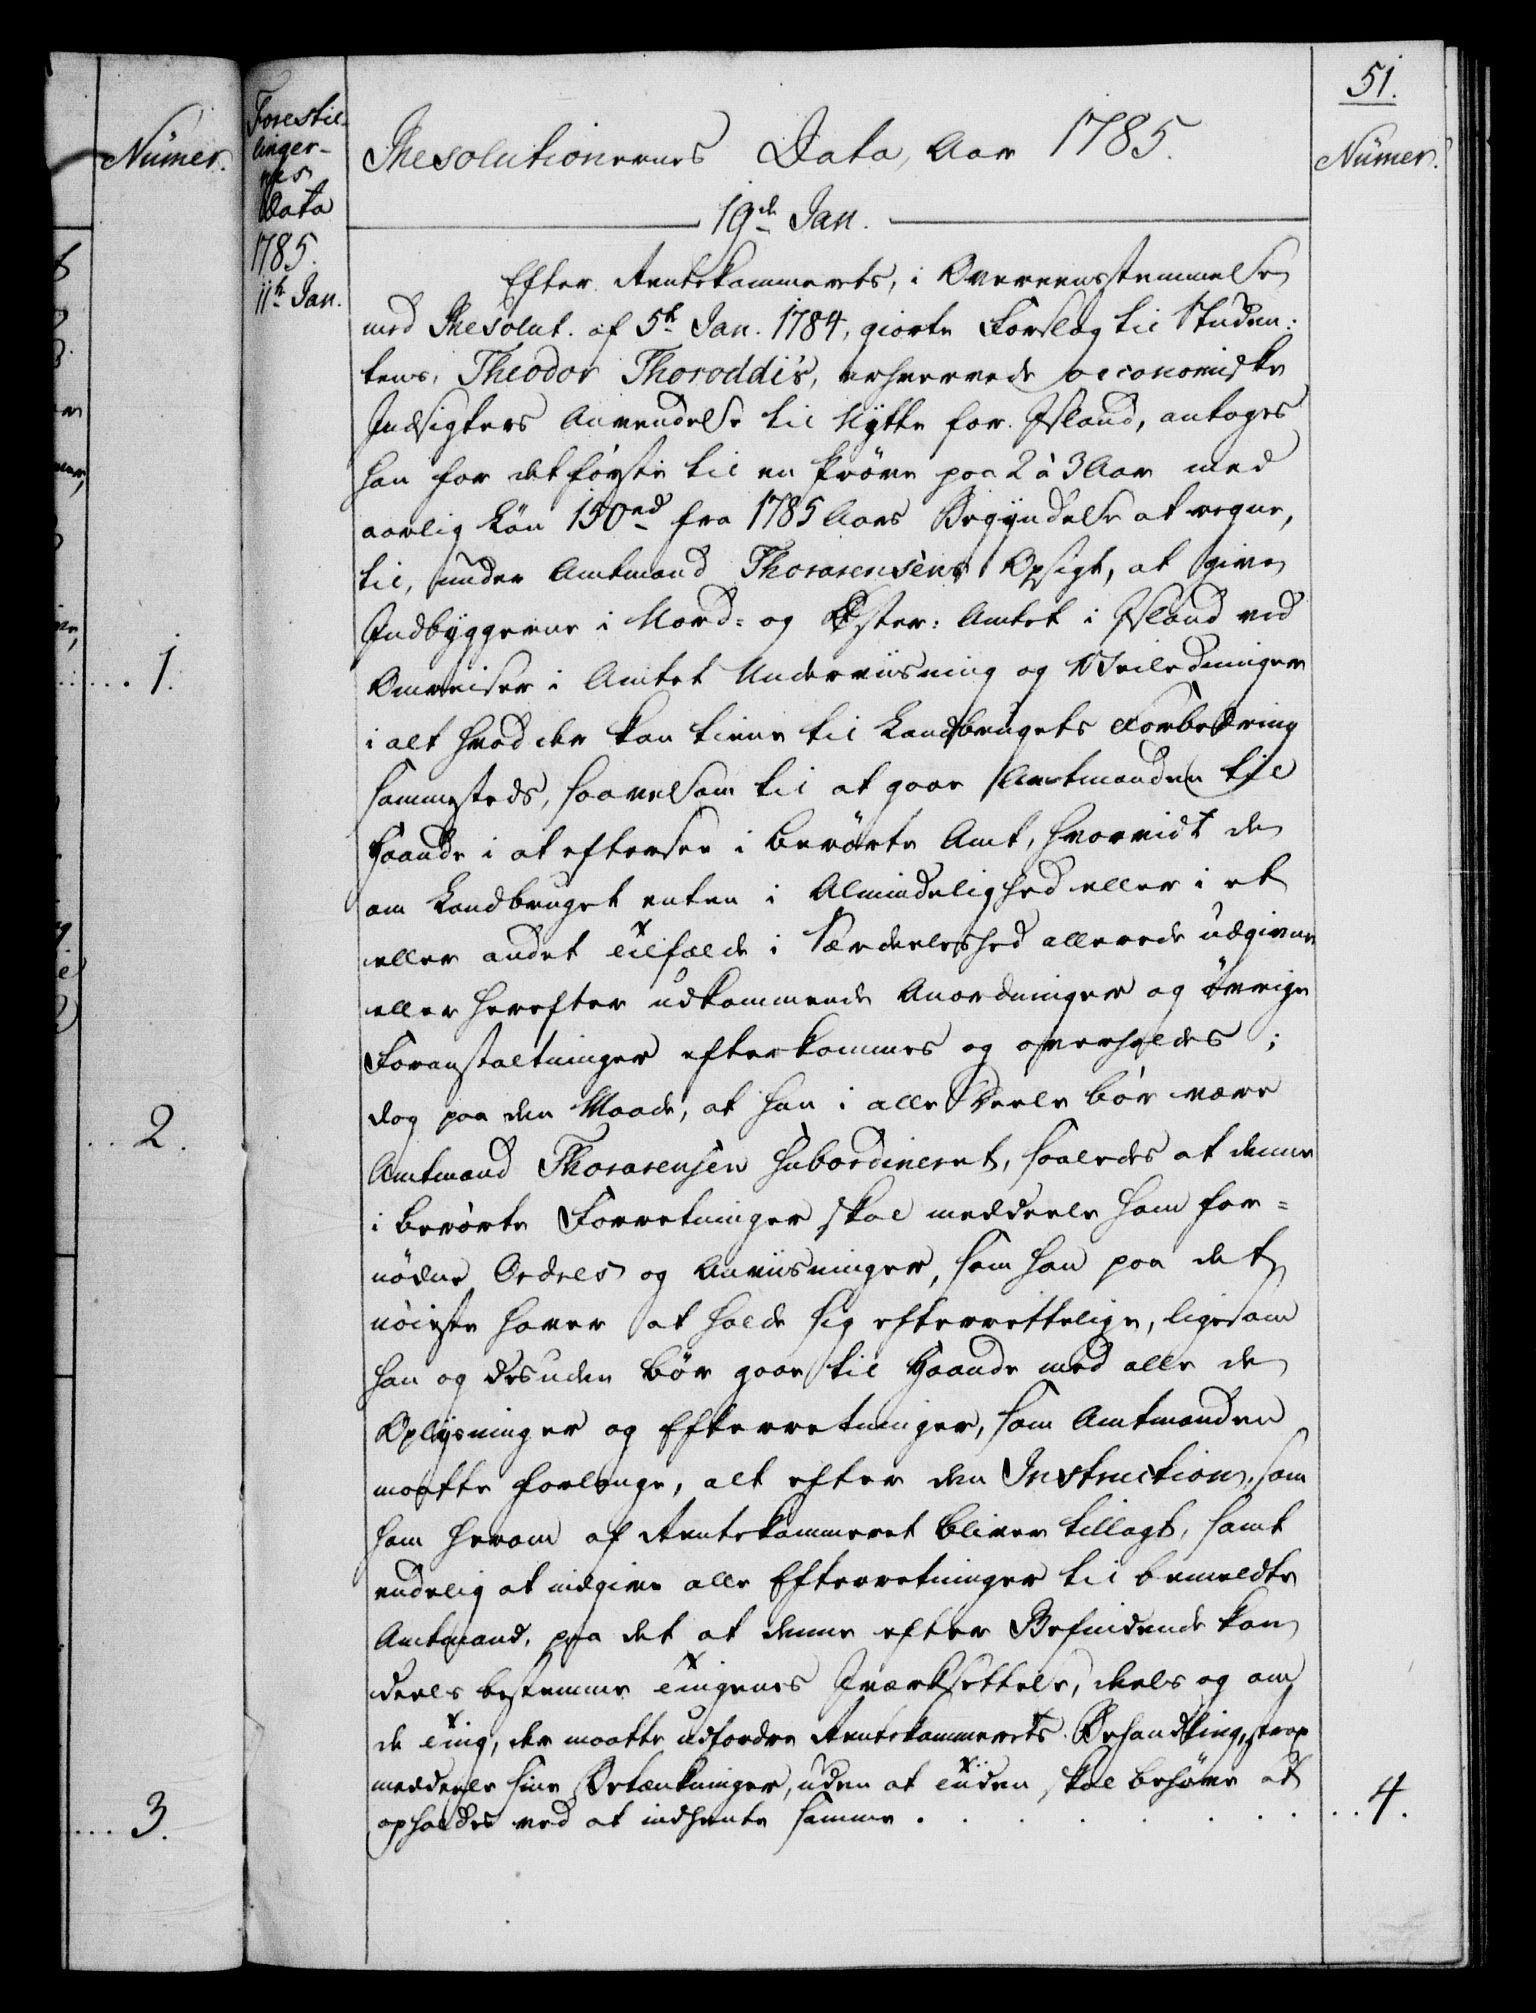 51.
Numer.
Forestil-
linger-
nes
Data
1785.
11te Jan.
Resolutionernes Data, Aar 1785.
Numer.
19de Jan.
Efter Rentekammerets, i Overeensstemmelse
med Resolut. af 5te Jan. 1784, giorte Forslag til Studen:
tens, Theodor Thoroddi's, erhvervede oeconomiske
Indsigters Anvendelse til Nytte for Island, antages
han for det første til en Prøve paa 2 à 3 Aar med
aarlig Løn 150 rd fra 1785 Aars Begyndelse at regne,
til, under Amtmand Thorarensens Opsigt, at give
Indbyggerne i Nord= og Øster: Amtet i Island ved
Omreiser i Amtet Underviisning og Veiledninger
i alt hvad der kan tiene til Landbrugets Forbedring
sammesteds, saavelsom til at gaae Amtmanden til
Haande i at efterse i berørte Amt, hvorvidt de
om Landbruget enten i Almindelighed eller i et
eller andet Tilfælde i Særdeleshed allerede udgivne
eller herefter udkommende Anordninger og øvrige
Foranstaltninger efterkommes og overholdes;
dog paa den Maade, at han i alle Deele bør være
Amtmand Thorarensen subordineret, saaledes at denne
i berørte Forretninger skal meddeele ham for=
nødne Ordres og Anviisninger, som han paa det
nøieste haver at holde sig efterrettelige, ligesom
han og desuden bør gaae til Haande med alle de
Oplysninger og Efterretninger, som Amtmanden
maatte forlange, alt efter den Instruction, som
ham herom af Rentekammeret bliver tillagt, samt
endelig at indgive alle Efterretninger til bemeldte
Amtmand, paa det at denne efter Befindende kan
deels bestemme Tingenes Iværksettelse, deels og om
de Ting, der maatte udfordre Rentekammerets Behandling, strax
meddeele sine Betænkninger, uden at Tiden skal behøve at
opholdes ved at indhente samme . . . . . . . . . 4.
1.
2.
3.